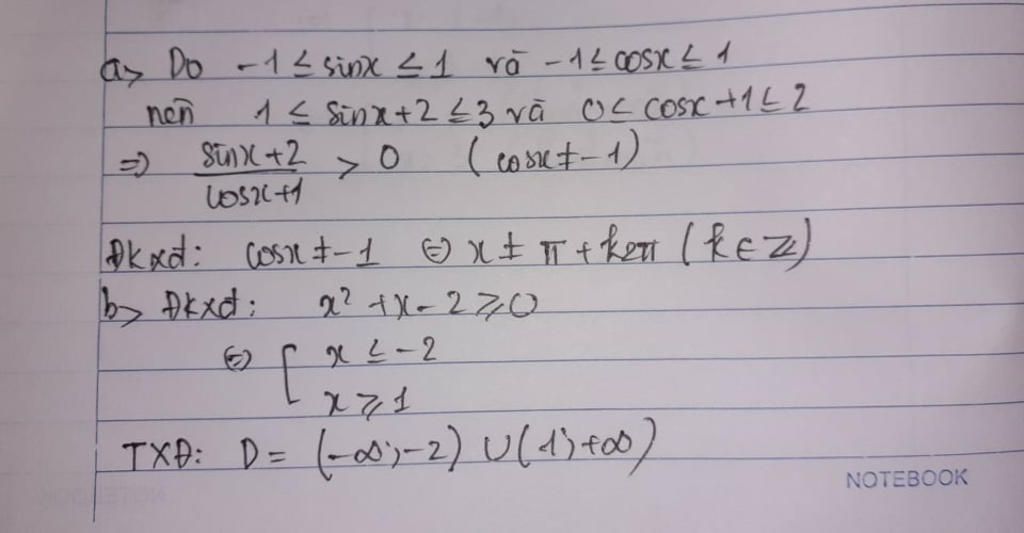 a> Do -1 ≤ sinx ≤ 1 và -1 ≤ cosx ≤ 1
nên 1 ≤ sinx+2 ≤ 3 và 0 ≤ cosx+1 ≤ 2
⇒ \frac{sinx+2}{cosx+1} > 0 (cosx ≠ -1)
Đkxđ: cosx ≠ -1 ⇔ x ≠ π + k2π (k ∈ Z)
b> Đkxđ: x² + x - 2 ≥ 0
⇔ [ x ≤ -2
x ≥ 1
TXĐ: D = (-∞; -2) ∪ (1; +∞)
NOTEBOOK